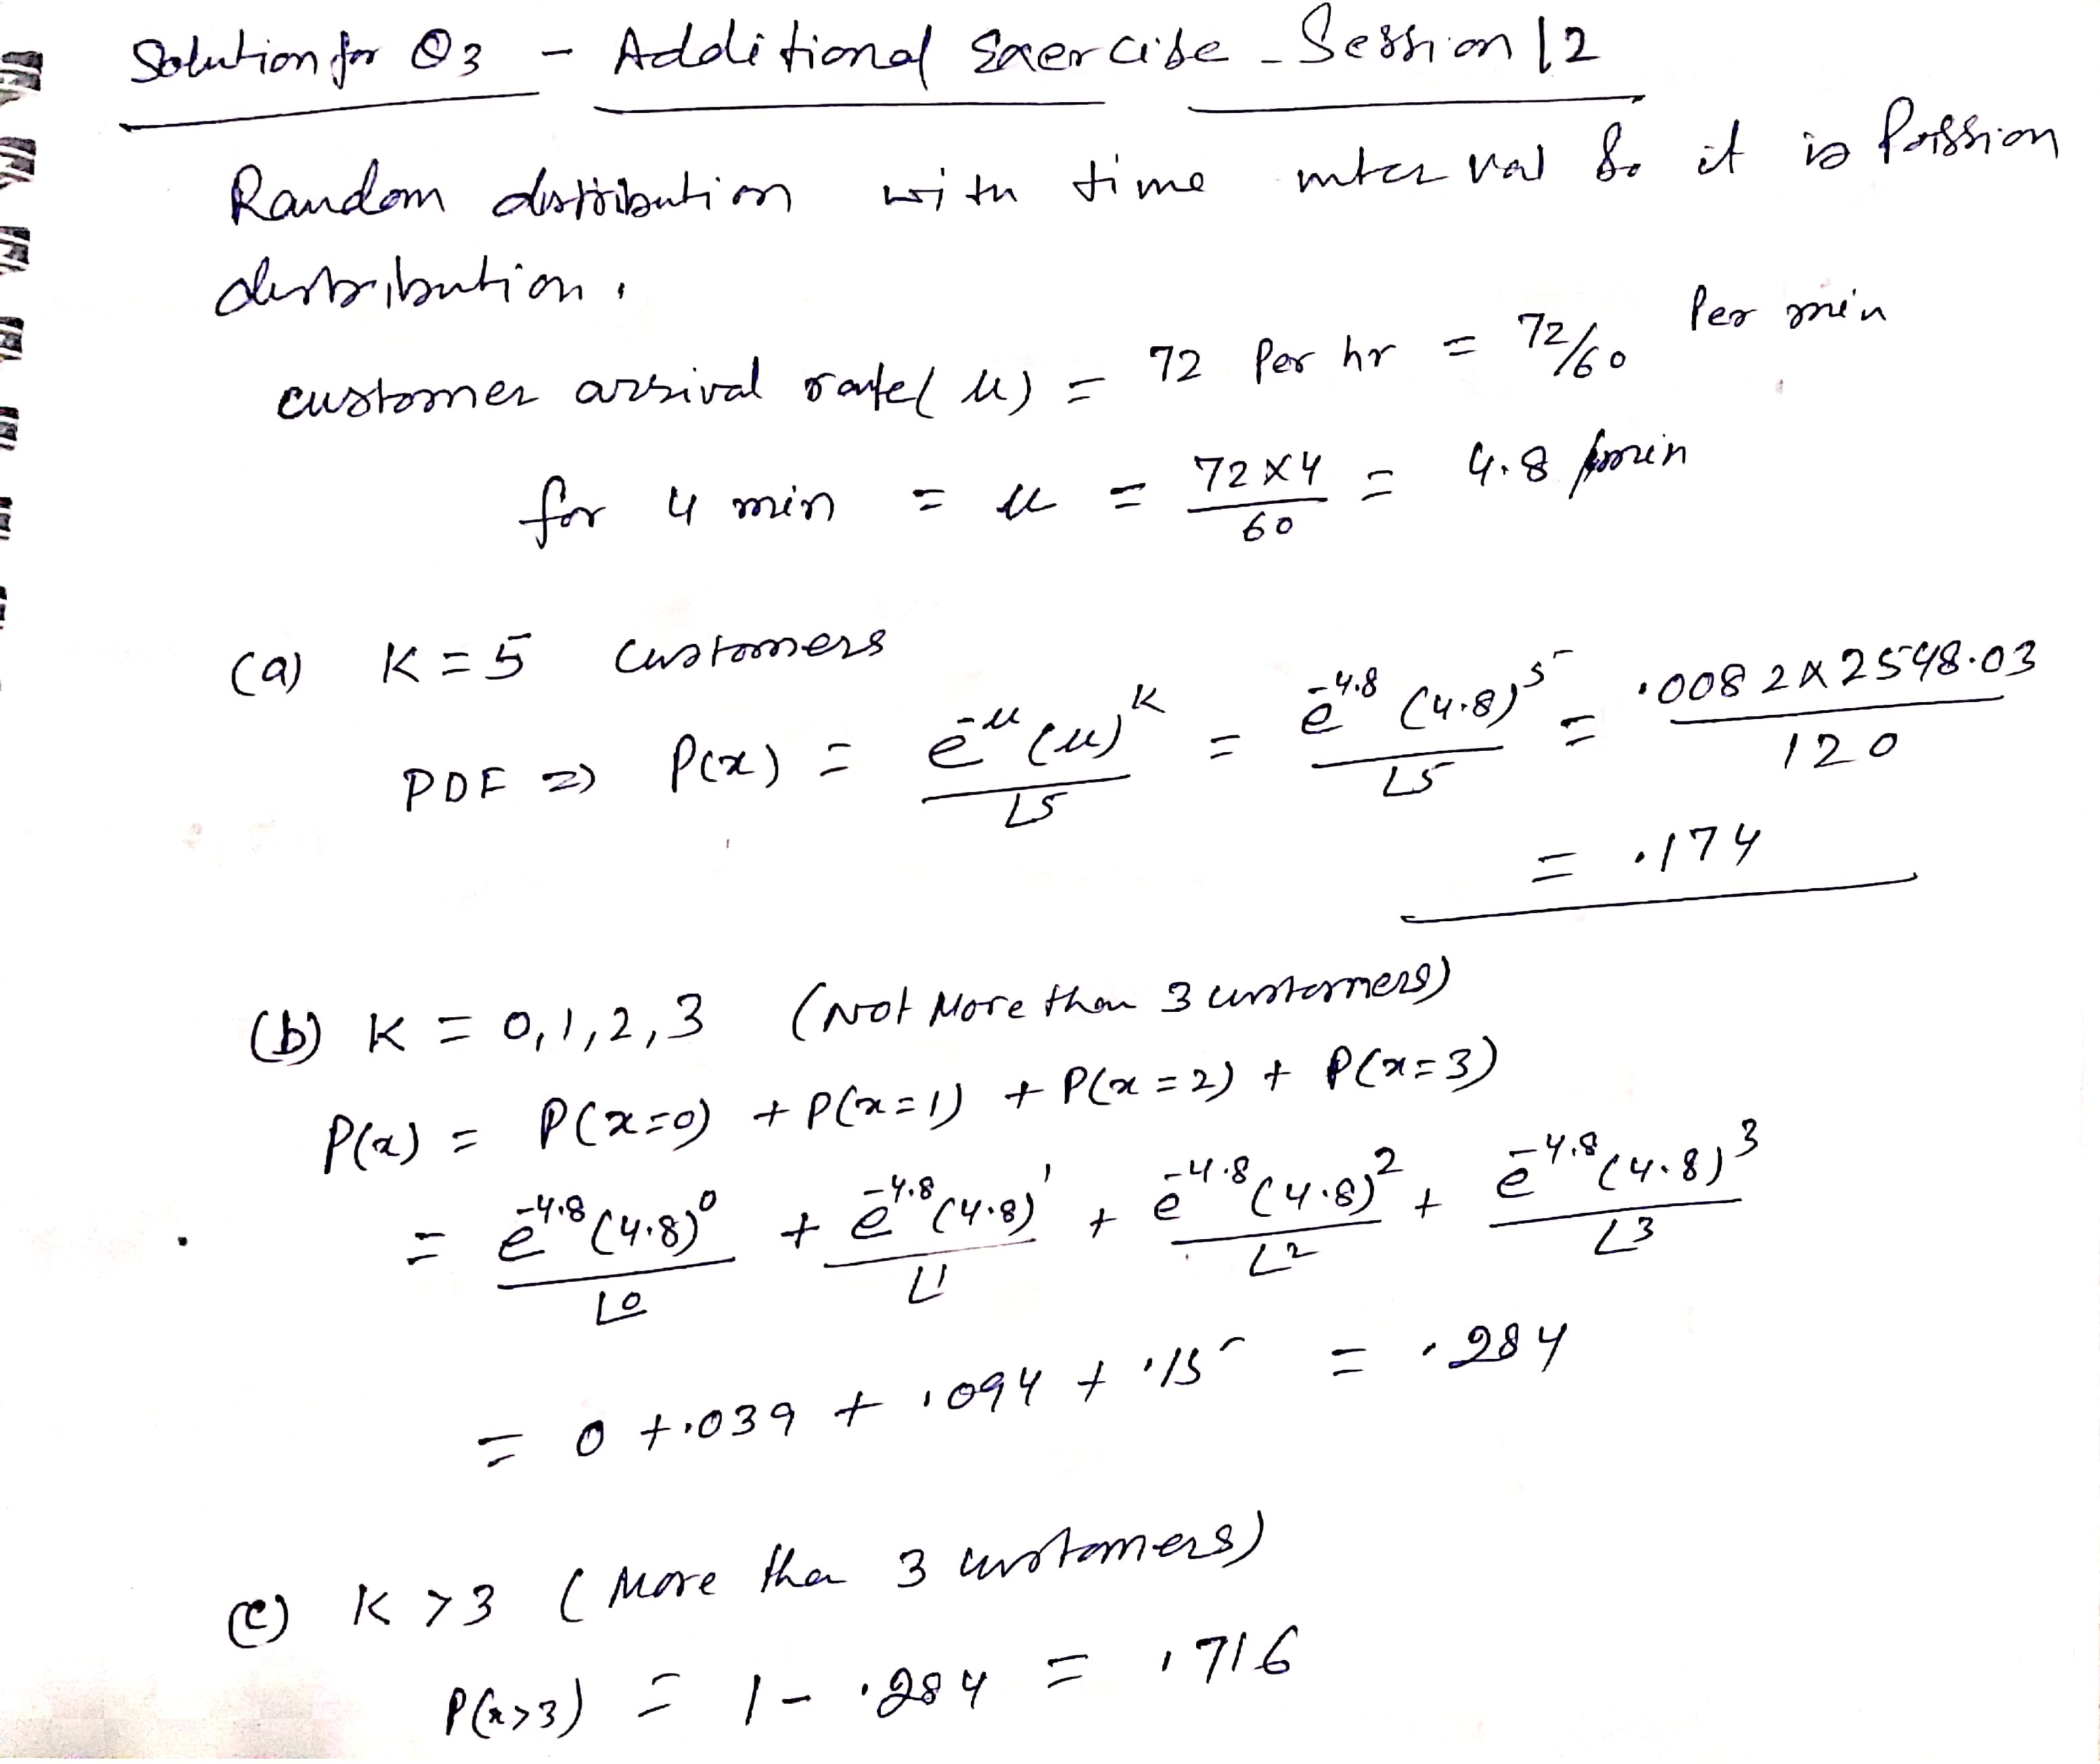 Solution for Q3 - Additional Exercise - Session 12
Random distribution with time interval so it is Poission
distribution.
customer arrival rate(μ) = 72 Per hr = 72/60 Per min
for 4 min = μ = 72×4/60 = 4.8 /min
(a) K = 5 customers
PDF => P(x) = e^-μ (μ)^K / ⌊5 = e^-4.8 (4.8)^5 / ⌊5 = .0082×2548.03 / 120
= .174
(b) K = 0,1,2,3 (Not More than 3 customers)
P(x) = P(x=0) + P(x=1) + P(x=2) + P(x=3)
= e^-4.8 (4.8)^0 / ⌊0 + e^-4.8 (4.8)^1 / ⌊1 + e^-4.8 (4.8)^2 / ⌊2 + e^-4.8 (4.8)^3 / ⌊3
= 0 + .039 + .094 + .15 = .284
(c) K >3 (More tha 3 customers)
P(x>3) = 1 - .284 = .716